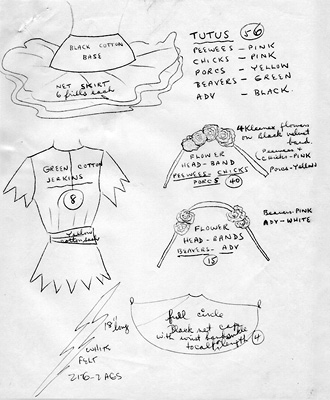 TUTUS 56
PEEWEES - PINK
CHICKS - PINK
PORCS - YELLOW
BEAVERS - GREEN
ADV - BLACK.
BLACK COTTON
BASE
NET SKIRT
6 frills each
4 Kleenex flowers
on black velvet
band.
Peewees &
Chicks - PINK
Porcs - Yellow
FLOWER
HEAD-BAND
PEEWEES CHICKS
PORCS 40
GREEN COTTON
JERKINS
8
Yellow
cotton sash
Beavers-PINK
ADV-WHITE
FLOWER
HEAD-BANDS
BEAVERS - ADV
15
18" long
WHITE
FELT
ZIG-ZAGS
full circle
Black net cape
with wrist bands
to calf length 4